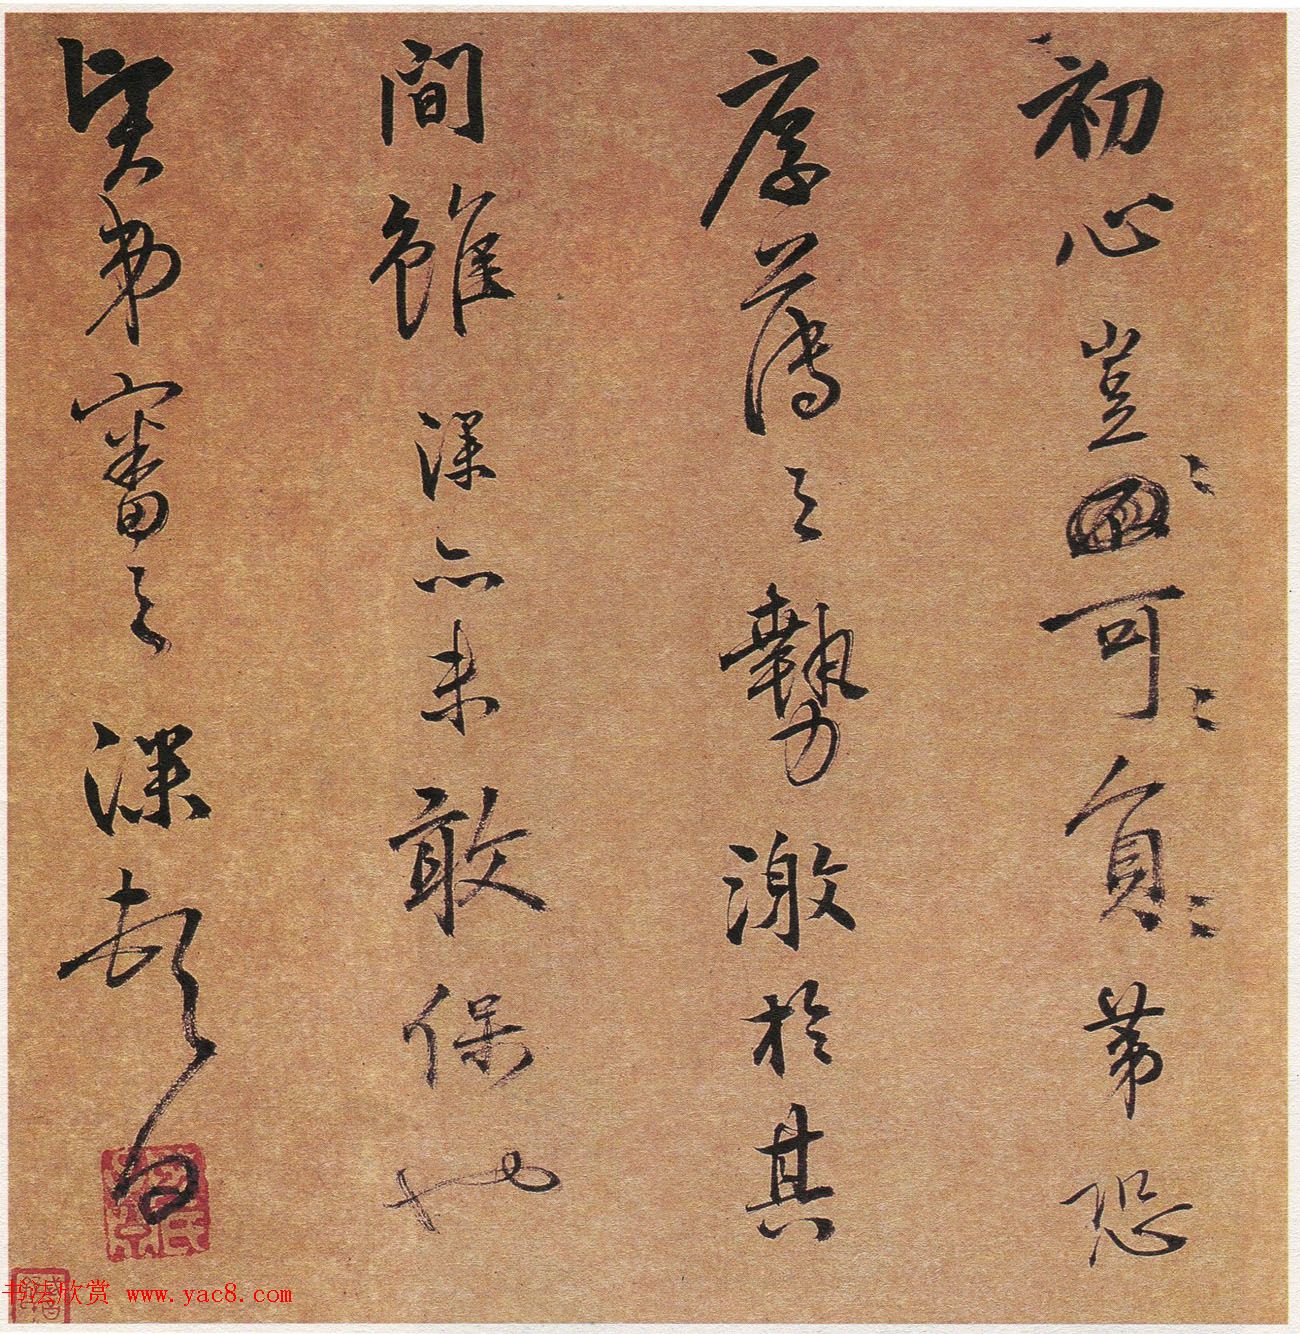 初心豈可負第恐
厚薄之勢激於其
間雖深亦未敢保也
賢弟審之深頓首白
书法欣赏 www.yac8.com